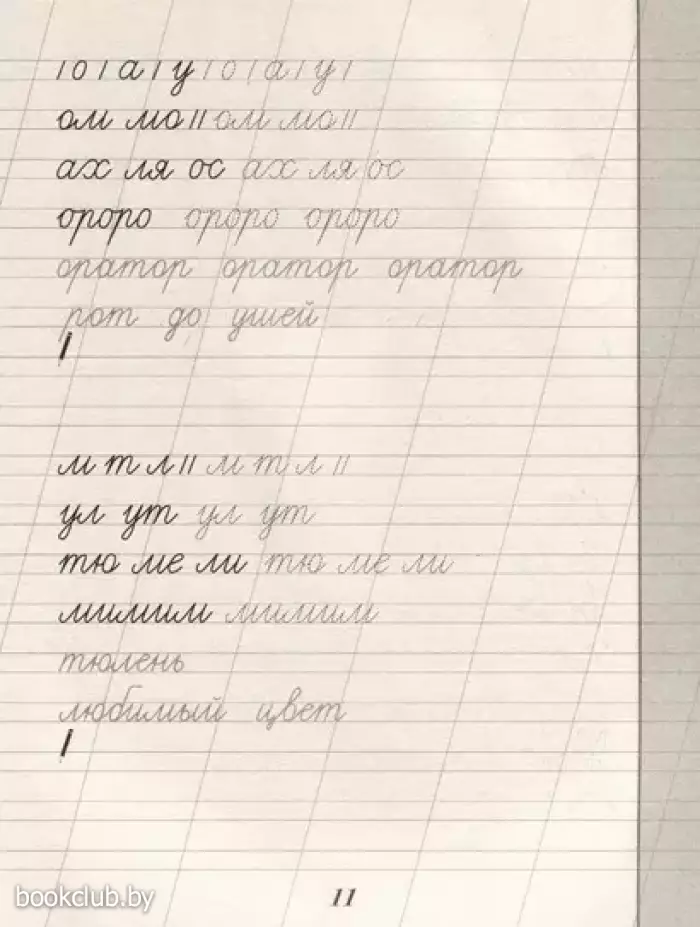 / о / а / у / о / а / у /
ом мо // ом мо //
ах ля ос ах ля ос
ороро ороро ороро
оратор оратор оратор
рот до ушей
/
м т л // м т л //
ул ут ул ут
тю ме ли тю ме ли
мимим мимим
тюлень
любимый цвет
/
bookclub.by
11